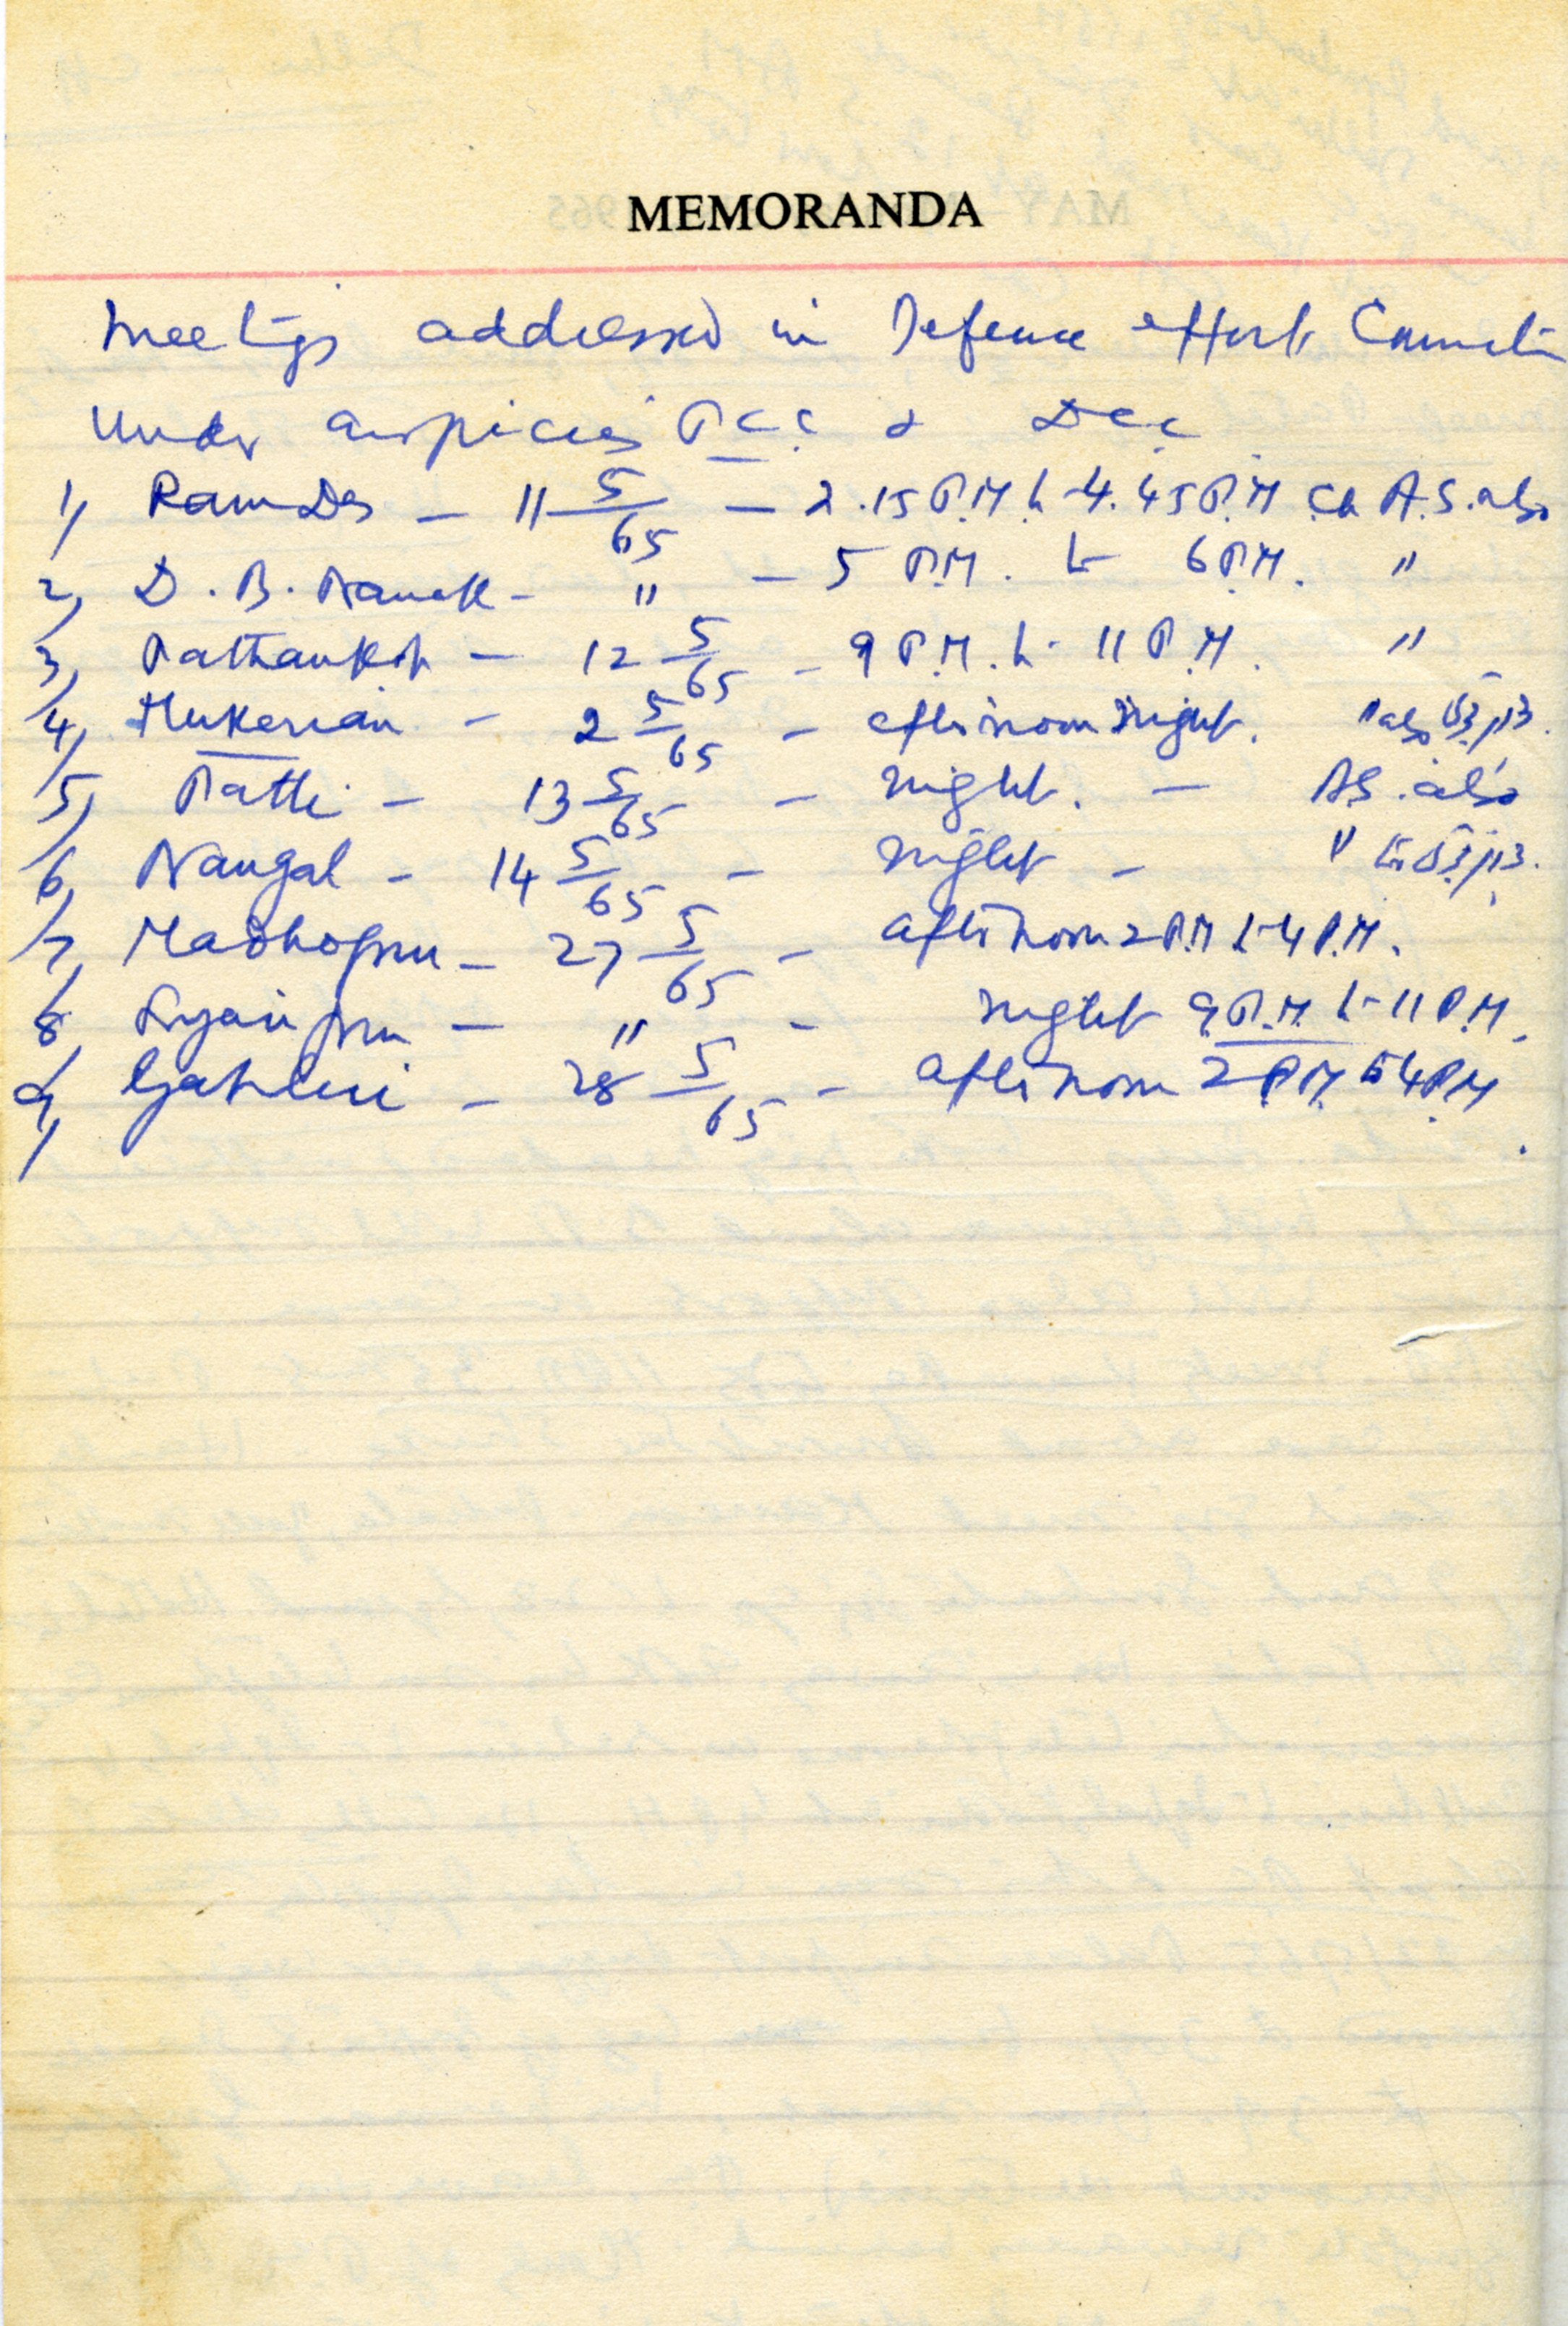 MEMORANDA
Meetings addressed in Defence effort
under auspices PCC & DCC
1) Ramdas - 11 5/65 - 2.15 P.M. to 4.45 P.M. Ch A.S. also
2) D. B. Nanak - " - 5 P.M. to 6 P.M. "
3) Pathankot - 12 5/65 - 9 P.M. to 11 P.M. "
4) Mukerian - 2 5/65 - afternoon night. " also
5) Patti - 13 5/65 - night. - AS. also
6) Nangal - 14 5/65 - night - "
7) Madhopur - 27 5/65 - afternoon 2 P.M to 4 P.M.
8) - " - night 9 P.M. to 11 P.M.
9) - 28 5/65 - afternoon 2 P.M. to 4 P.M.